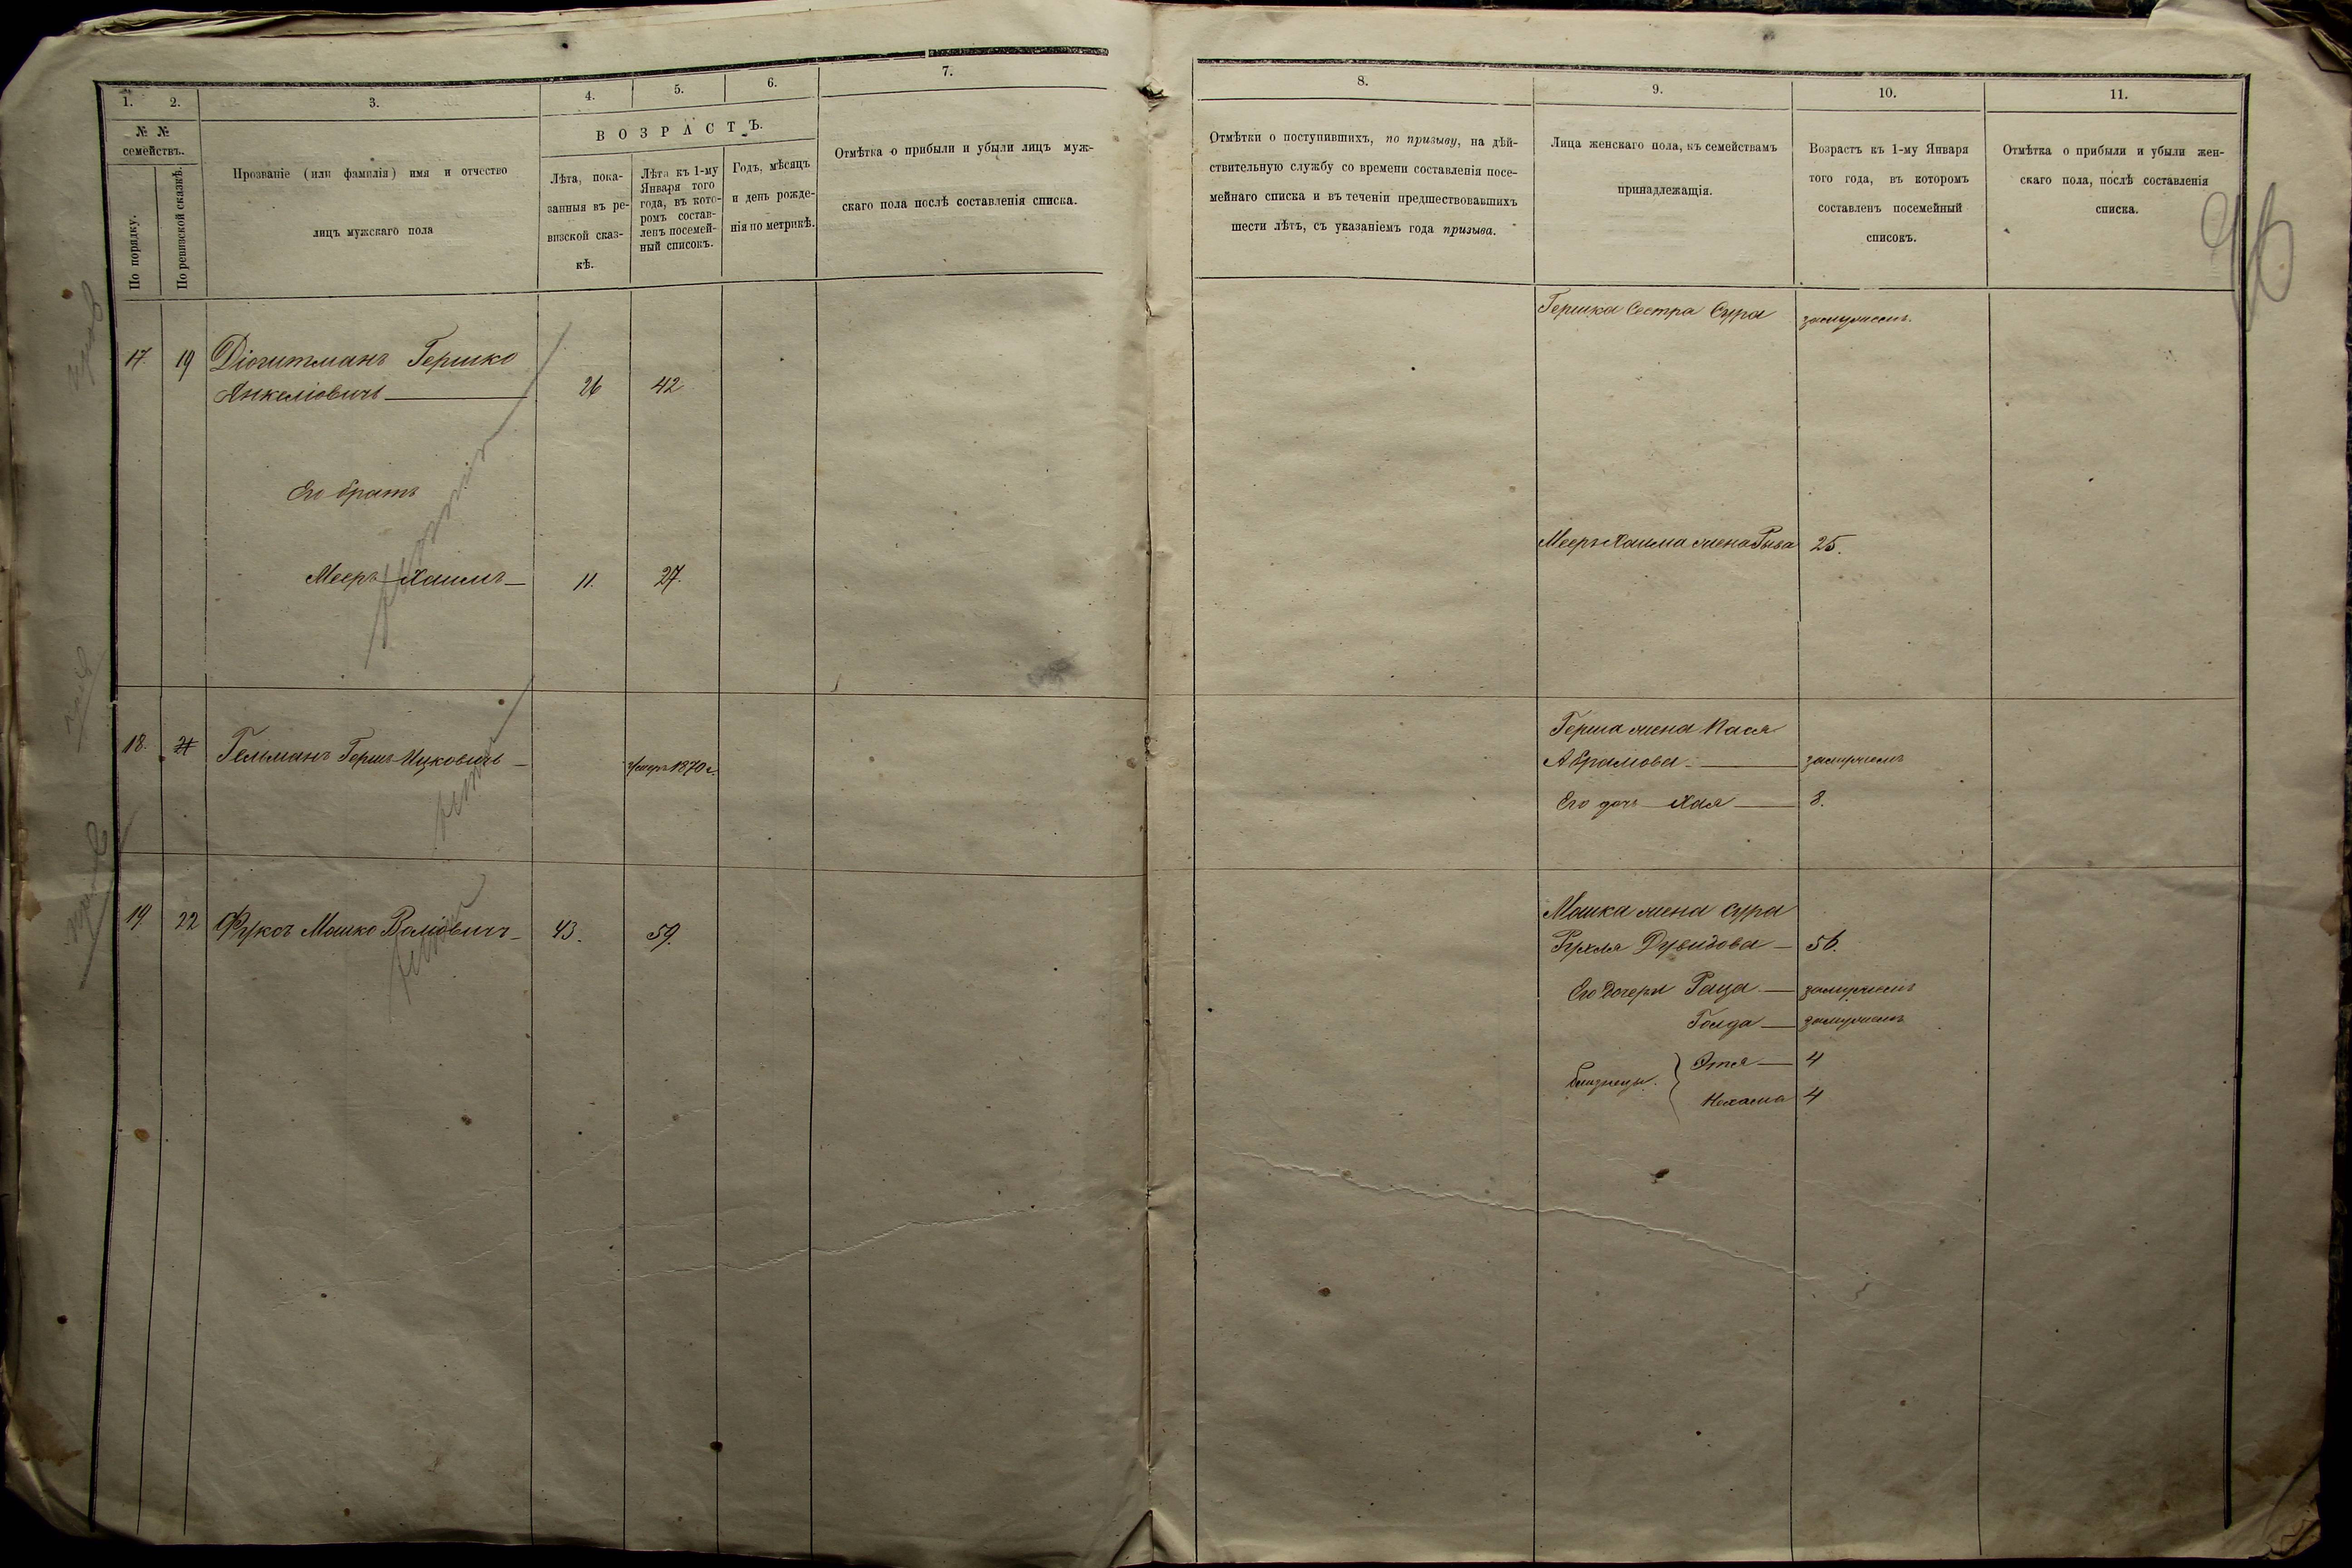 1.
2.
3.
4.
5.
6.
7.
№ №
семействъ.
По порядку.
По ревизской сказкѣ.
Прозваніе (или фамилія) имя и отчество
лицъ мужскаго пола
ВОЗРАСТЪ.
Лѣта, пока-
занныя въ ре-
визской сказ-
кѣ.
Лѣта къ 1-му
Января того
года, въ кото-
ромъ состав-
ленъ посемей-
ный списокъ.
Годъ, мѣсяцъ
и день рожде-
нія по метрикѣ.
Отмѣтка о прибыли и убыли лицъ муж-
скаго пола послѣ составленія списка.
17. 19 Діогитманъ Гершко
Янкеліовичъ 26 42
Его братъ
Мееръ-Хаимъ 11. 27.
18. Гельманъ Гершъ Ицковичъ 1870 г.
19 22 Фуксъ Мошко Воліовичъ 43. 59.
8.
9.
10.
11.
Отмѣтки о поступившихъ, по призыву, на дѣй-
ствительную службу со времени составленія посе-
мейнаго списка и въ теченіи предшествовавшихъ
шести лѣтъ, съ указаніемъ года призыва.
Лица женскаго пола, къ семействамъ
принадлежащія.
Возрастъ къ 1-му Января
того года, въ которомъ
составленъ посемейный
списокъ.
Отмѣтка о прибыли и убыли жен-
скаго пола, послѣ составленія
списка.
Гершка Сестра Сура замужемъ.
Мееръ Хаима жена Рыва 25.
Герша жена Пася
Абрамова замужемъ
Его дочь Хая 8.
Мошка жена Сура
Рухля Дувидова 56.
Его дочери Раца замужемъ
Голда замужемъ
близнецы. Этя 4
Нехама 4